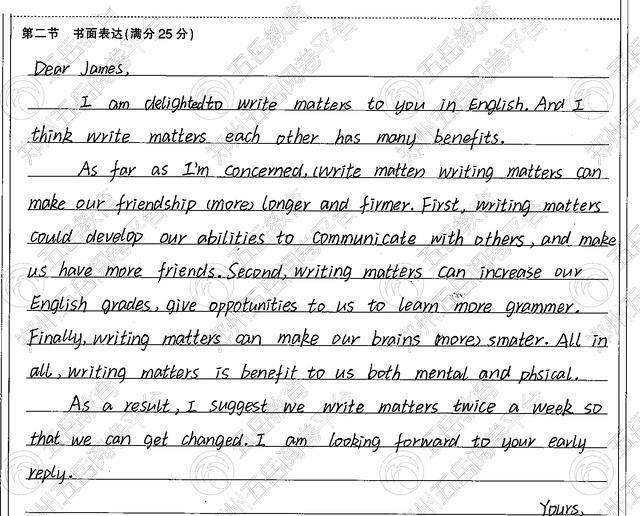 第二节 书面表达(满分25分)
Dear James,
I am delightedto write matters to you in English. And I
think write matters each other has many benefits.
As far as I'm concerned, (write matter) writing matters can
make our friendship (more) longer and firmer. First, writing matters
could develop our abilities to communicate with others, and make
us have more friends. Second, writing matters can increase our
English grades, give oppotunities to us to learn more grammer.
Finally, writing matters can make our brains (more) smater. All in
all, writing matters is benefit to us both mental and phsical.
As a result, I suggest we write matters twice a week so
that we can get changed. I am looking forward to your early
reply.
Yours,